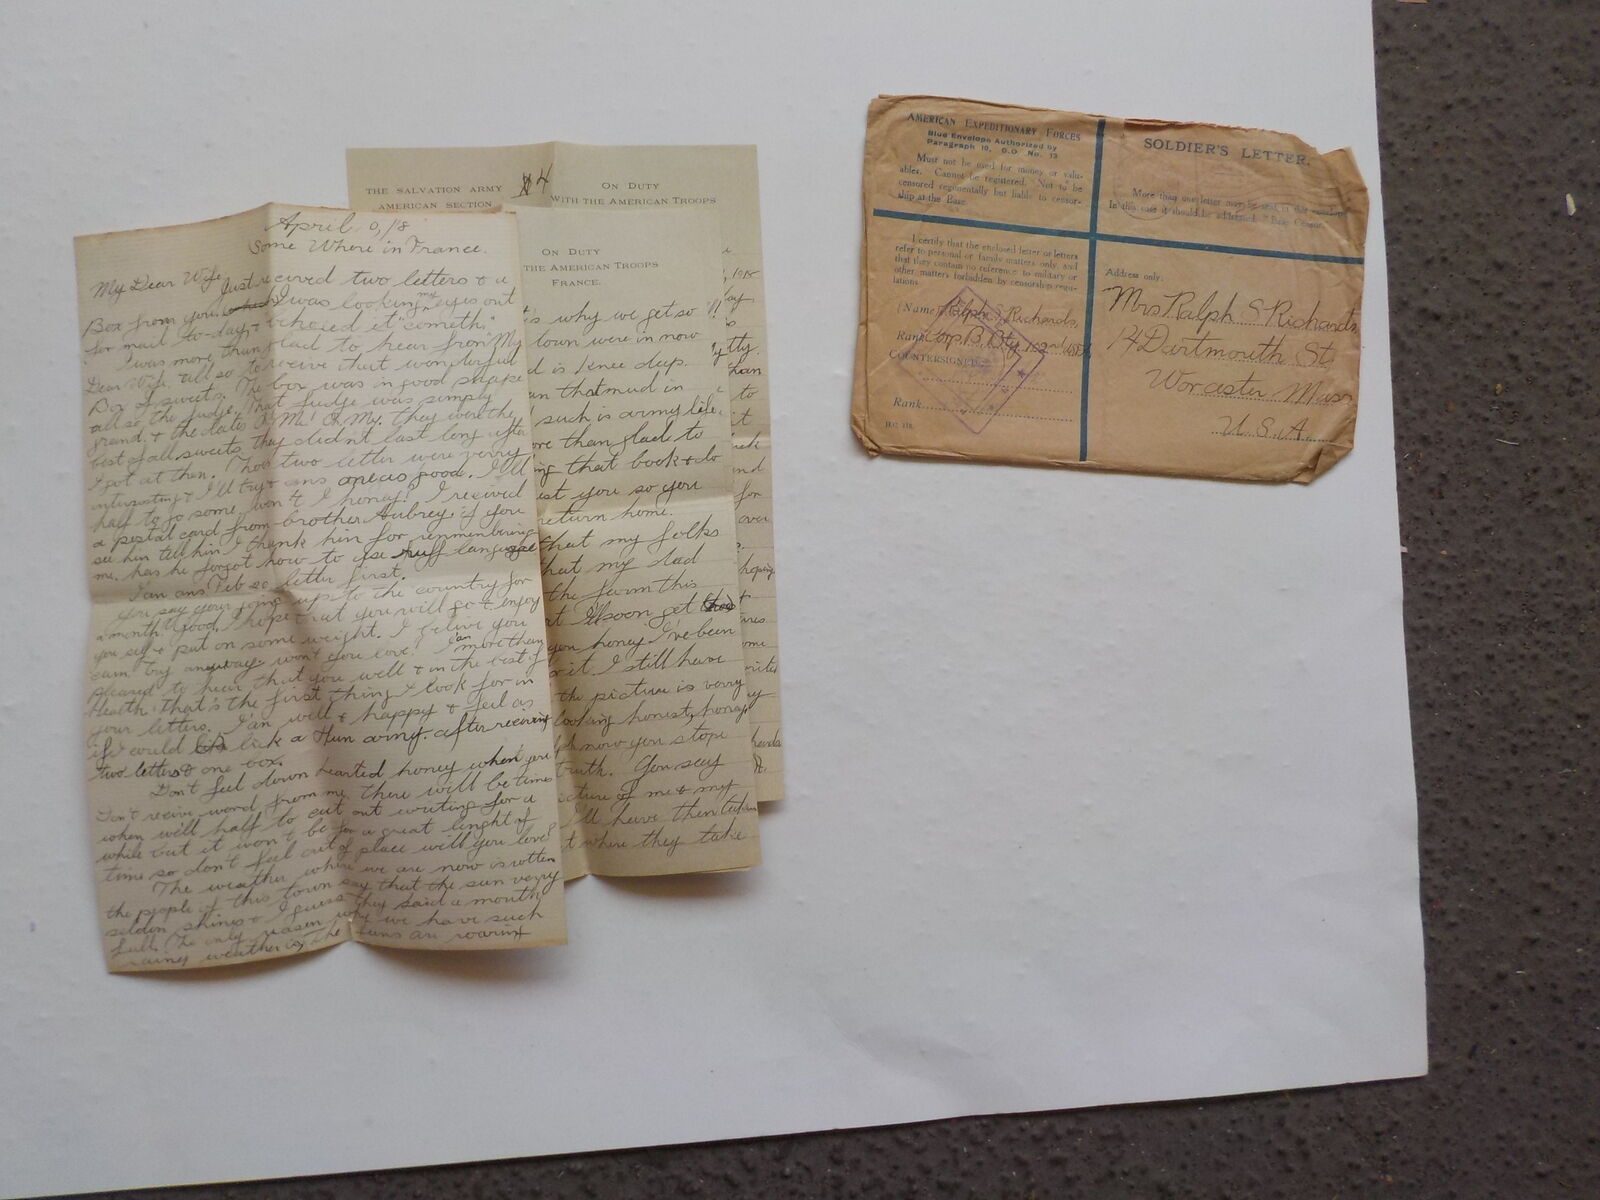 April 9, /18
Some Where in France.
My Dear Wife Just recived two letters & a
Box from you. I was looking my eyes out
for mail to-day, & behored it "cometh."
I was more than glad to hear from My
Dear Wife. all so to receive that wonderful
Box of sweets. The box was in good shape
all so the fudge. That fudge was simply
grand. & the dates O M! O My. they were the
best of all sweets, they didn't last long after
I got at them. Thos two letter were verry
intresting & I'll try & ans as good. I'll
half to go some won't I honey! I recived
a postal card from brother Aubrey, if you
see him tell him I thank him for remmenbering
me. has he forgot how to use ruff language
I'an ans. Feb 20 letter first.
You say your going up to the country for
a month. Good. I hope that you will go & enjoy
you self & put on some weight. I belive you
cam, try anyway won't you love! I'an more than
pleased to hear that you well & in the best of
Health. that's the first thing I look for in
your letters. I'an well & happy & feel as
if I could lick a Hun army. after reciving
two letters & one box.
Don't feel down hearted honey when you
Don't recive word from me there will be times
when we'll half to cut out writing for a
while but it won't be for a great lenght of
time so don't feel out of place will you love?
The weather where we are now is rotten
the people of this town say that the sun verry
seldon shines & I guess they said a mouth
full. The only reason why we have such
rainy weather is, the guns are roaring
THE SALVATION ARMY
AMERICAN SECTION
4
ON DUTY
WITH THE AMERICAN TROOPS
ON DUTY
THE AMERICAN TROOPS
FRANCE.
's why we get so
town were in now
d is 1 ence deep.
an that mud in
such is army life.
ore than glad to
ing that book & do
ist you so you
return home.
that my folks
hat my dad
the farm this
t I'll soon get
you honey I've been
it. I still have
the picture is verry
looking honest, honey
ph now you stope
truth. You say
icture of me & my
I'll have then taken
t where they take
AMERICAN EXPEDITIONARY FORCES
Blue Envelope Authorized by
Paragraph 10, G.O No. 13
Must not be used for money or valu-
ables. Cannot be registered. Not to be
censored regimentally but liable to censor-
ship at the Base.
SOLDIER'S LETTER.
More than one letter may be sent in this envelope
In this case it should be addressed, "Base Censor.
I certify that the enclosed letter or letters
refer to personal or family matters only, and
that they contain no reference to military or
other matters forbidden by censorship regu-
lations.
(Name) Ralph S. Richards,
Rank Corp. B, Bty, 102nd
COUNTERSIGNED
Rank
Address only.
Mrs Ralph S Richards
14 Dartmouth St.
Worcester Mass
U. S. A.